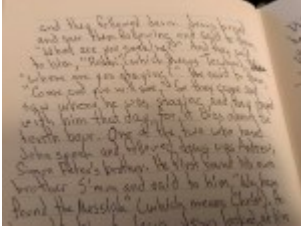 and they followed Jesus. Jesus turned
and saw them following and said to them
"What are you seeking?" And they said
to him, "Rabbi" (which means Teacher),
"where are you staying?" He said to them
"Come and you will see." So they came and
saw where he was staying, and they stayed
with him that day, for it was about the
tenth hour. One of the two who heard
John speak and followed Jesus was Andrew,
Simon Peter's brother. He first found his own
brother Simon and said to him, "We have
found the Messiah" (which means Christ). He
Jesus looked at him